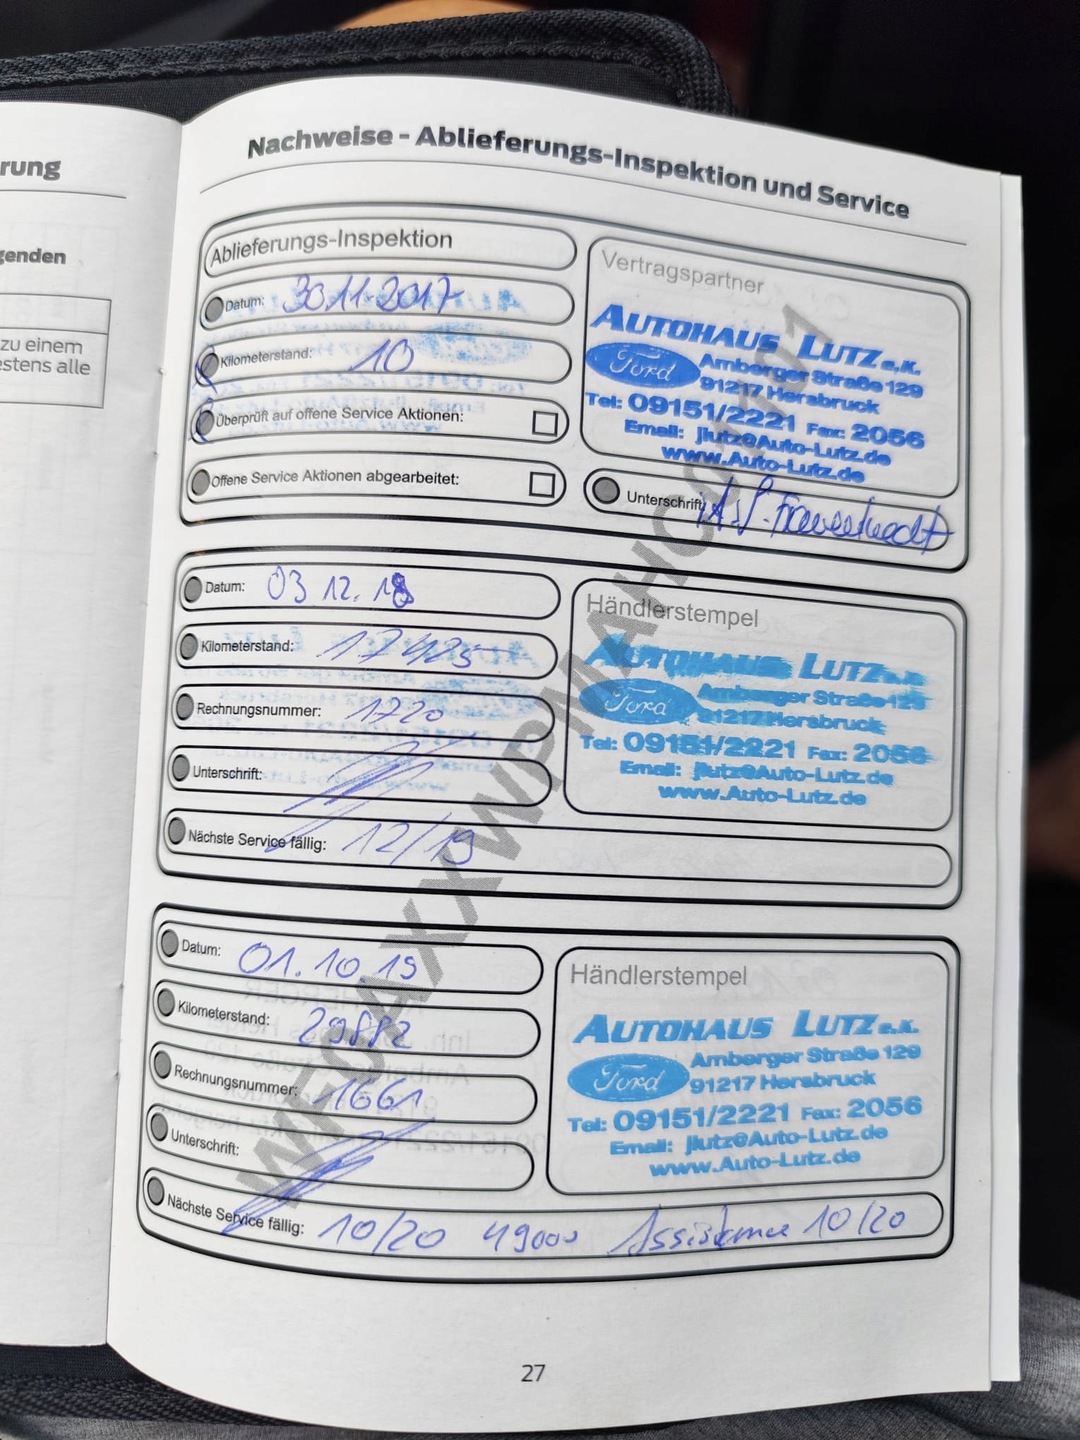 rung
genden
zu einem
estens alle
Nachweise - Ablieferungs-Inspektion und Service
Ablieferungs-Inspektion
Datum: 30.11.2017
Kilometerstand: 10
Überprüft auf offene Service Aktionen:
Offene Service Aktionen abgearbeitet:
Vertragspartner
AUTOHAUS LUTZ e.K.
Ford
Amberger Straße 129
91217 Hersbruck
Tel: 09151/2221 Fax: 2056
Email: jlutz@Auto-Lutz.de
www.Auto-Lutz.de
Unterschrift
Datum: 03 12. 18
Kilometerstand: 17425
Rechnungsnummer: 1720
Unterschrift:
Nächste Service fällig: 12/19
Händlerstempel
AUTOHAUS LUTZ e.K.
Ford
Amberger Straße 129
91217 Hersbruck
Tel: 09151/2221 Fax: 2056
Email: jlutz@Auto-Lutz.de
www.Auto-Lutz.de
Datum: 01.10.19
Kilometerstand: 29882
Rechnungsnummer: 1661
Unterschrift:
Nächste Service fällig: 10/20 49000 Assistance 10/20
Händlerstempel
AUTOHAUS LUTZ e.K.
Ford
Amberger Straße 129
91217 Hersbruck
Tel: 09151/2221 Fax: 2056
Email: jlutz@Auto-Lutz.de
www.Auto-Lutz.de
27